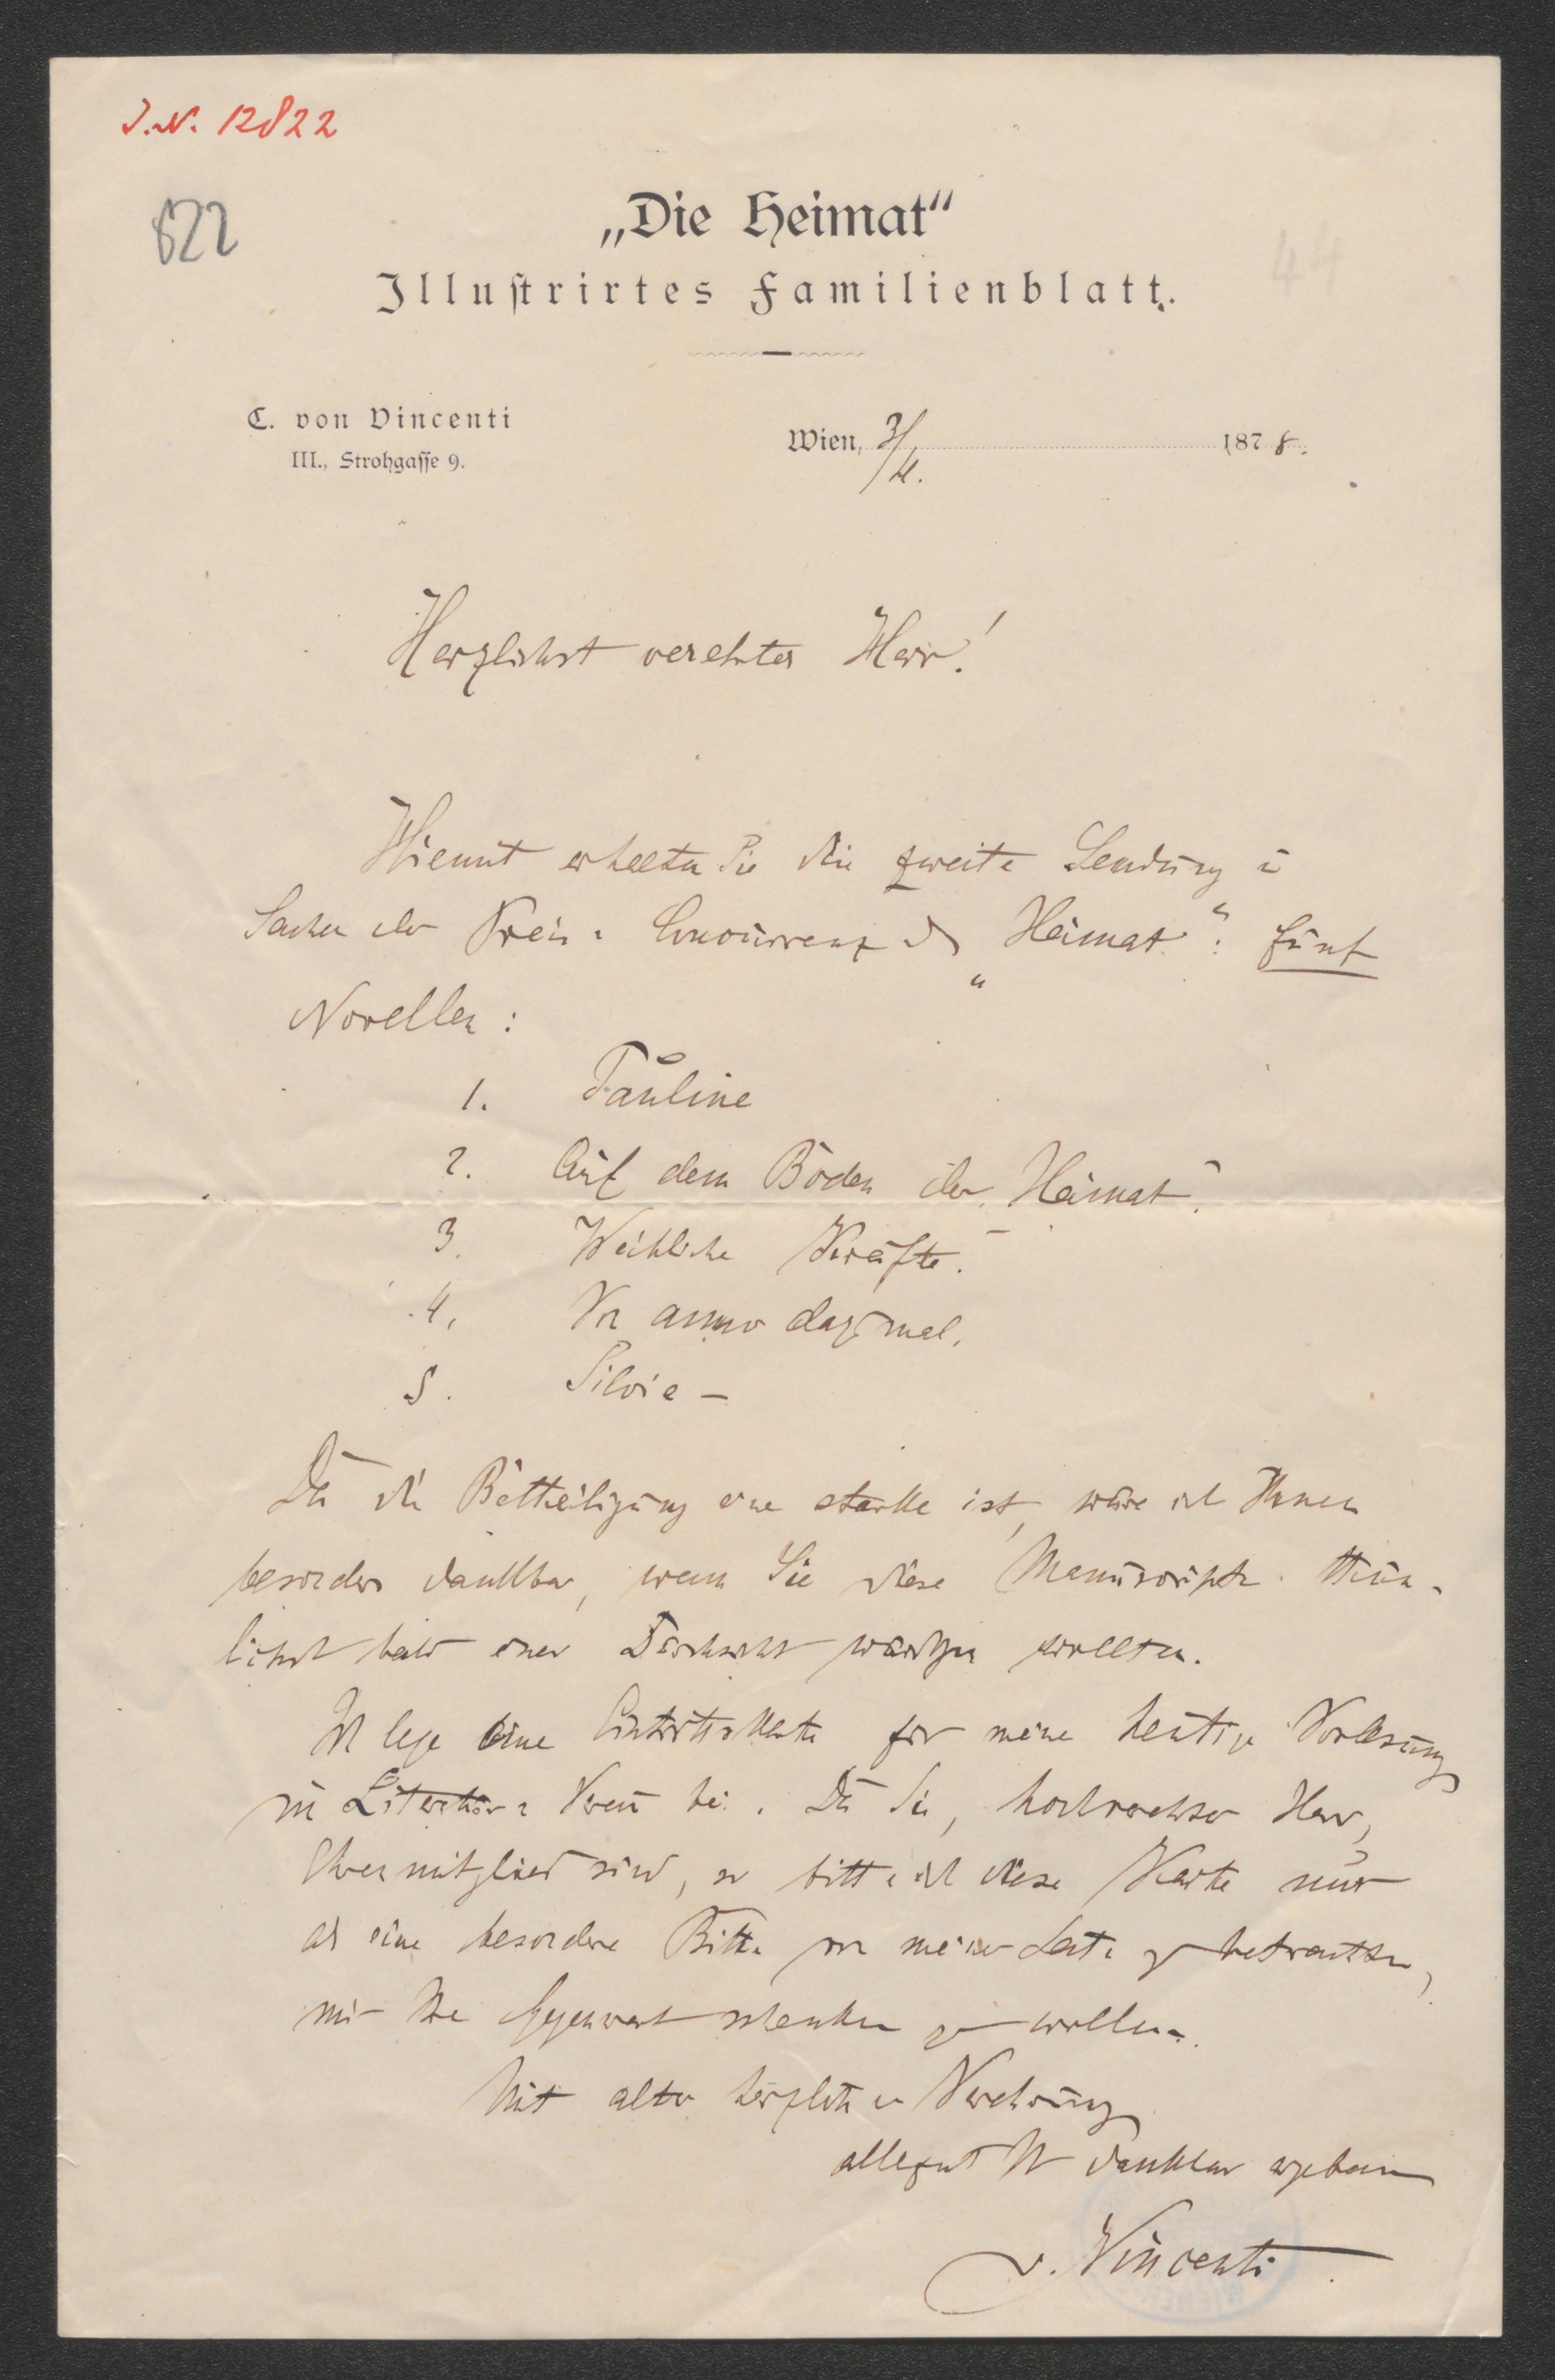 J.N. 12822
622
44
„Die Heimat“
Illustrirtes Familienblatt.
C. von Vincenti
III., Strohgasse 9.
Wien, 3/4. 1878.
Herzlichst verehrter Herr!
Hiemit erhalten Sie die zweite Sendung in
Sachen der Preis-Concurrenz der „Heimat“: fünf
Novellen:
1. Pauline
2. Auf dem Boden der Heimat.
3. Weibliche Kräfte.
4. Von anno dazumal.
5. Silvie –
Da die Betheiligung eine starke ist, wäre ich Ihnen
besonders dankbar, wenn Sie diese Manuscripte thun-
lichst bald einer Durchsicht würdigen wollten.
Ich lege eine Eintrittskarte für meine heutige Vorlesung
im Literatur-Verein bei. Da Sie, hochverehrter Herr,
Ehrenmitglied sind, so bitte ich diese Karte nur
als eine besondere Bitte von meiner Seite zu betrachten,
mir Ihre Gegenwart schenken zu wollen.
Mit alter herzlicher Verehrung
allezeit Ihr dankbar ergebener
v. Vincenti.